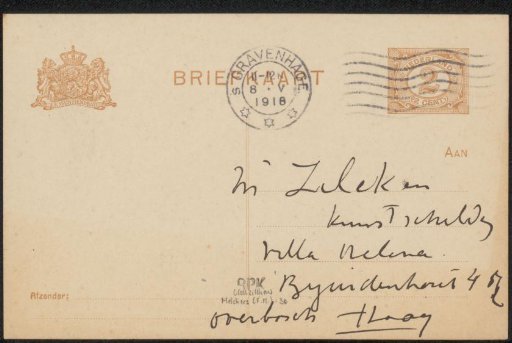 BRIEFKAART
S GRAVENHAGE
11-12
8 · V
1918
NEDERLAND
2
CENT
AAN
Zilcken
Kunstschilder
Villa Helena
Bezuidenhout
overbosch Haag
RPK
Afzender: